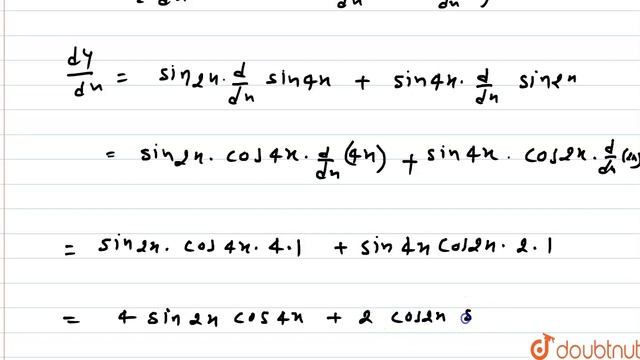 dy/dx = sin2x. d/dx sin4x + sin4x. d/dx sin2x
= sin2x. cos4x. d/dx (4x) + sin4x. cos2x. d/dx (2x)
= sin2x. cos4x. 4.1 + sin4x cos2x. 2.1
= 4 sin2x cos4x + 2 cos2x s
doubtnut